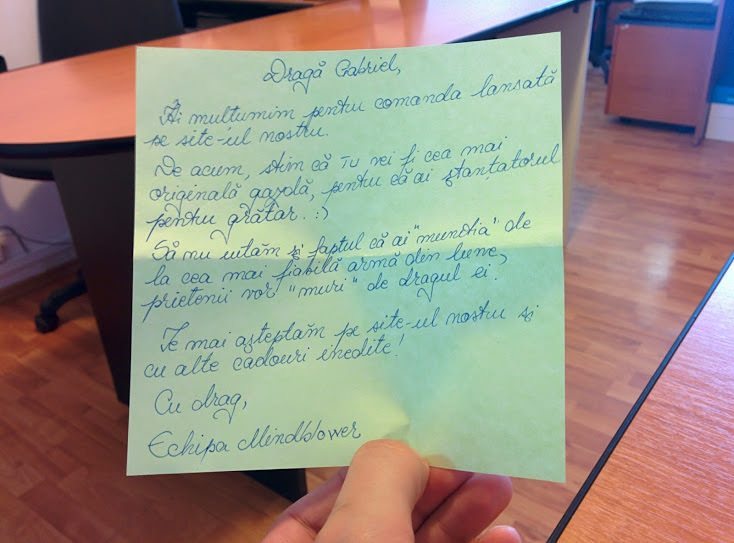 Dragă Gabriel,
Îți mulțumim pentru comanda lansată
pe site-ul nostru.
De acum, știm că tu vei fi cea mai
originală gazdă, pentru că ai ștanțatorul
pentru grătar. :)
Să nu uităm și faptul că ai "muniția" de
la cea mai fiabilă armă din lume,
prietenii vor "muri" de dragul ei.
Te mai așteptăm pe site-ul nostru și
cu alte cadouri inedite!
Cu drag,
Echipa Mindblower